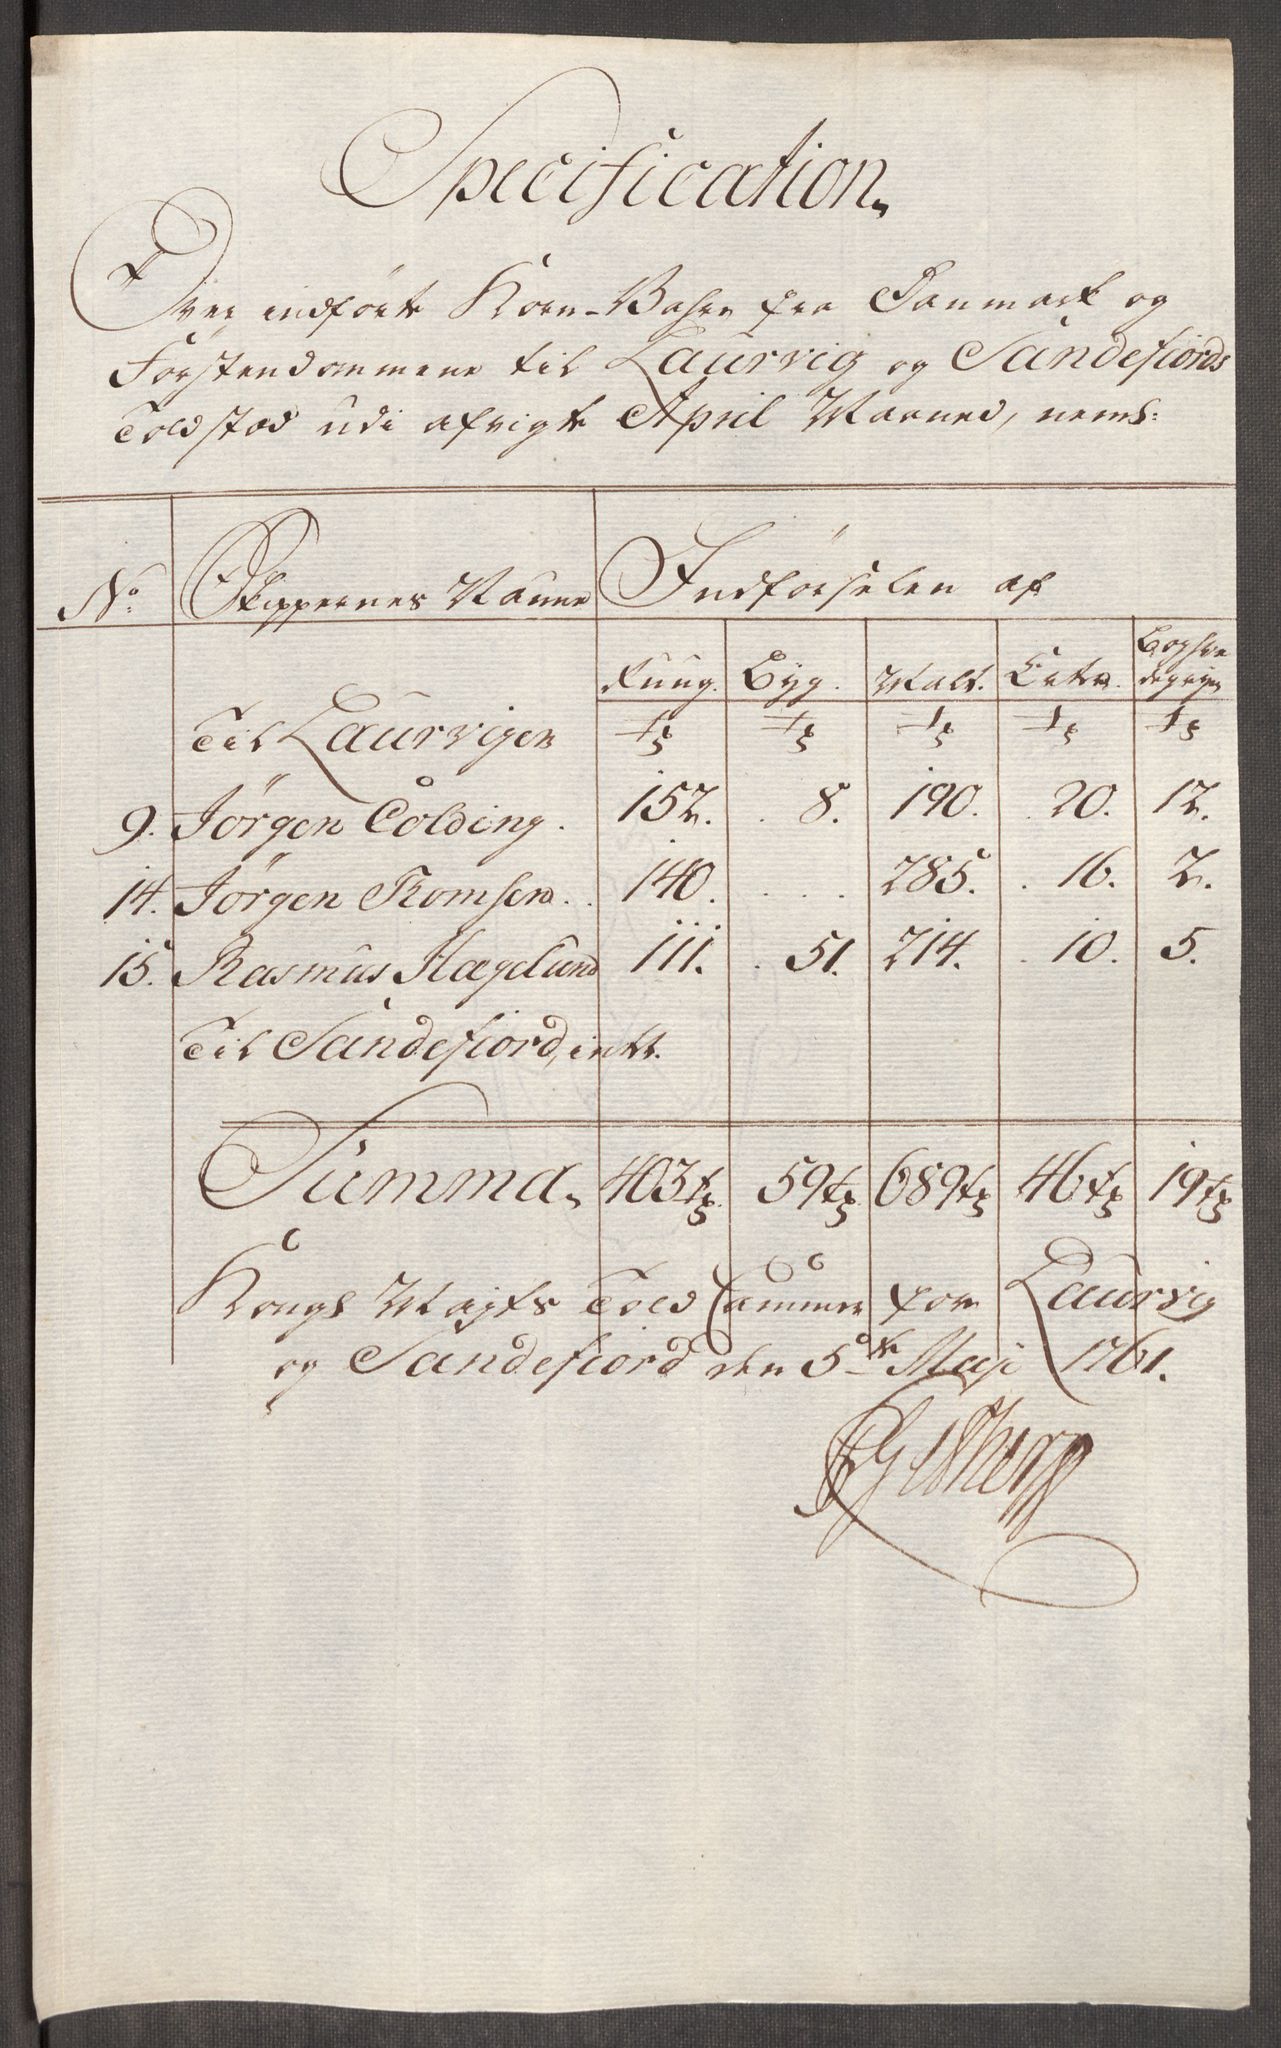 Specification
Over indførte Korn-Vahre fra Danmark og
Förstendommene til Laurvig og Sandefiords
Toldsted udi afvigte April Maaned, neml:
No: Skippernes Naune Indførselen af
Rug. Byg. Malt. Erter. Boghvede gryn
Til Laurvigen tr tr tr tr tr
9. Jørgen Colding. 152. 8. 190. 20. 12.
14. Jørgen Thomsen. 140. 285. 16. 2.
15. Rasmus Hagelund 111. 51. 214. 10. 5.
Til Sandefiord, intet.
Summa 403 tr 59 tr 689 tr 46 tr 19 tr
Kongl Mayts Told Cammer for Laurvig
og Sandefiord den 5te Maji 1761.